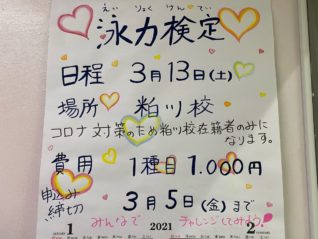 えい りょく けん てい
泳力検定
日程 3月13日(土)
場所 粕ツ校
コロナ対策のため粕ツ校在籍者のみに
なります。
費用 1種目 1.000円
申込み
締切 3月5日(金)まで
みんなで チャレンジしてみよう!
1 2021 2